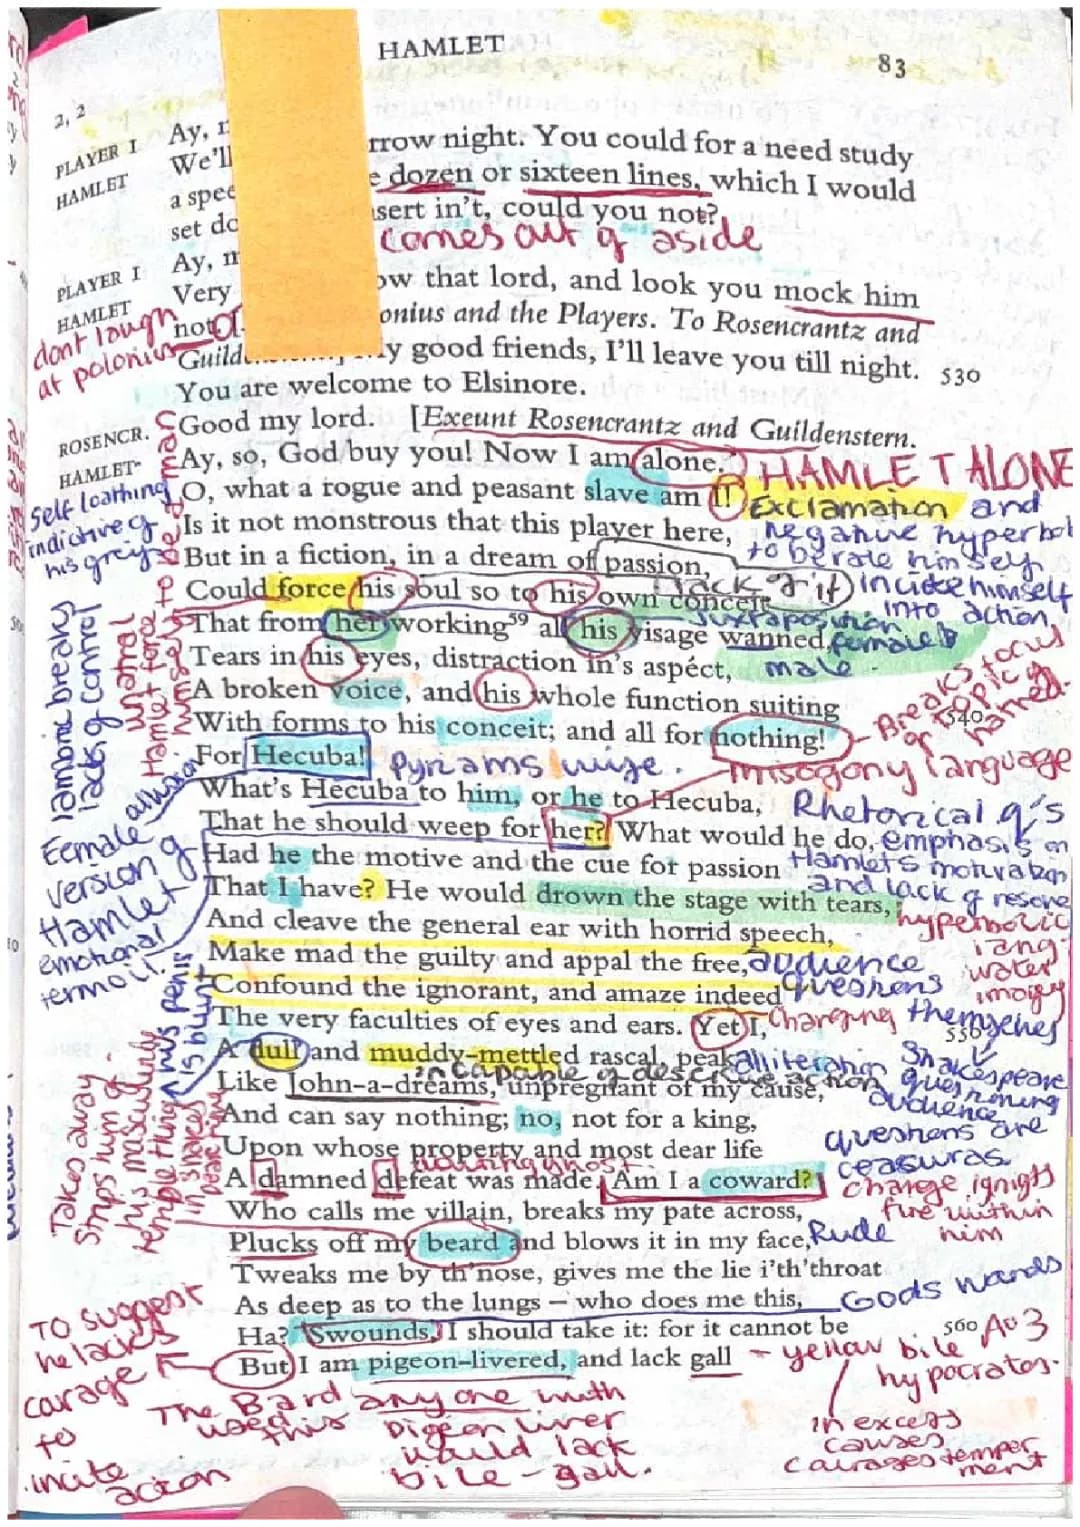 HAMLET
83
2, 2
PLAYER I Ay, rrow night. You could for a need study
HAMLET We'll e dozen or sixteen lines, which I would
a spee sert in't, could you not?
set do
comes out of aside
PLAYER I Ay, ow that lord, and look you mock him
HAMLET Very onius and the Players. To Rosencrantz and
not
dont laugh
at polonius
Guild y good friends, I'll leave you till night. 530
You are welcome to Elsinore.
ROSENCR. Good my lord. [Exeunt Rosencrantz and Guildenstern.
HAMLET Ay, so, God buy you! Now I am alone.
HAMLET ALONE
O, what a rogue and peasant slave am I!
Exclamation and
Self loathing
indictive of
his
Is it not monstrous that this player here,
negative hyperbol
to berate himself
But in a fiction, in a dream of passion,
(lack of it) incite himself
into action
Could force his soul so to his own conceit
juxtaposition
female &
male
That from her working⁵⁹ all his visage wanned,
Tears in his eyes, distraction in's aspéct,
A broken voice, and his whole function suiting
With forms to his conceit; and all for nothing! 540
Breaks focus
or topic
named.
Iambic breaks
lacks of control
unatral
Hamlet force
himself to be dramatic
For Hecuba!
Pyriams wife.
misogony language
What's Hecuba to him, or he to Hecuba,
Rhetorical q's
emphasis on
Hamlet's motivation
and lack of resolve
That he should weep for her? What would he do,
Female allusion
version of
Hamlet
emotional
termoil.
Had he the motive and the cue for passion
That I have? He would drown the stage with tears,
hyperbolic
lang
water
imagry
And cleave the general ear with horrid speech,
Make mad the guilty and appal the free,
audience
questions
themselves
Confound the ignorant, and amaze indeed
The very faculties of eyes and ears. Yet I, 550
changing
A dull and muddy-mettled rascal, peak
alliteration
Shakespeare
questioning
audience
incapable of descisive action
Like John-a-dreams, unpregnant of my cause,
And can say nothing; no, not for a king,
questions are
ceasuras.
Upon whose property and most dear life
A damned defeat was made. Am I a coward?
change, ignights
fire within
him
Who calls me villain, breaks my pate across,
Takes away
strips him of
his masculinity
his penis
is blunt
Plucks off my beard and blows it in my face,
Rude
Tweaks me by th'nose, gives me the lie i'th'throat
As deep as to the lungs – who does me this,
Gods wands
Ha? 'Swounds, I should take it: for it cannot be 560
AO3
But I am pigeon-livered, and lack gall
- yellow bile
hypocrates.
in excess
causes
temper
ment
TO suggest
he lacks
carage
to
incite
action
The Bard
used this
any one with
pigeon liver
would lack
bile - gall.